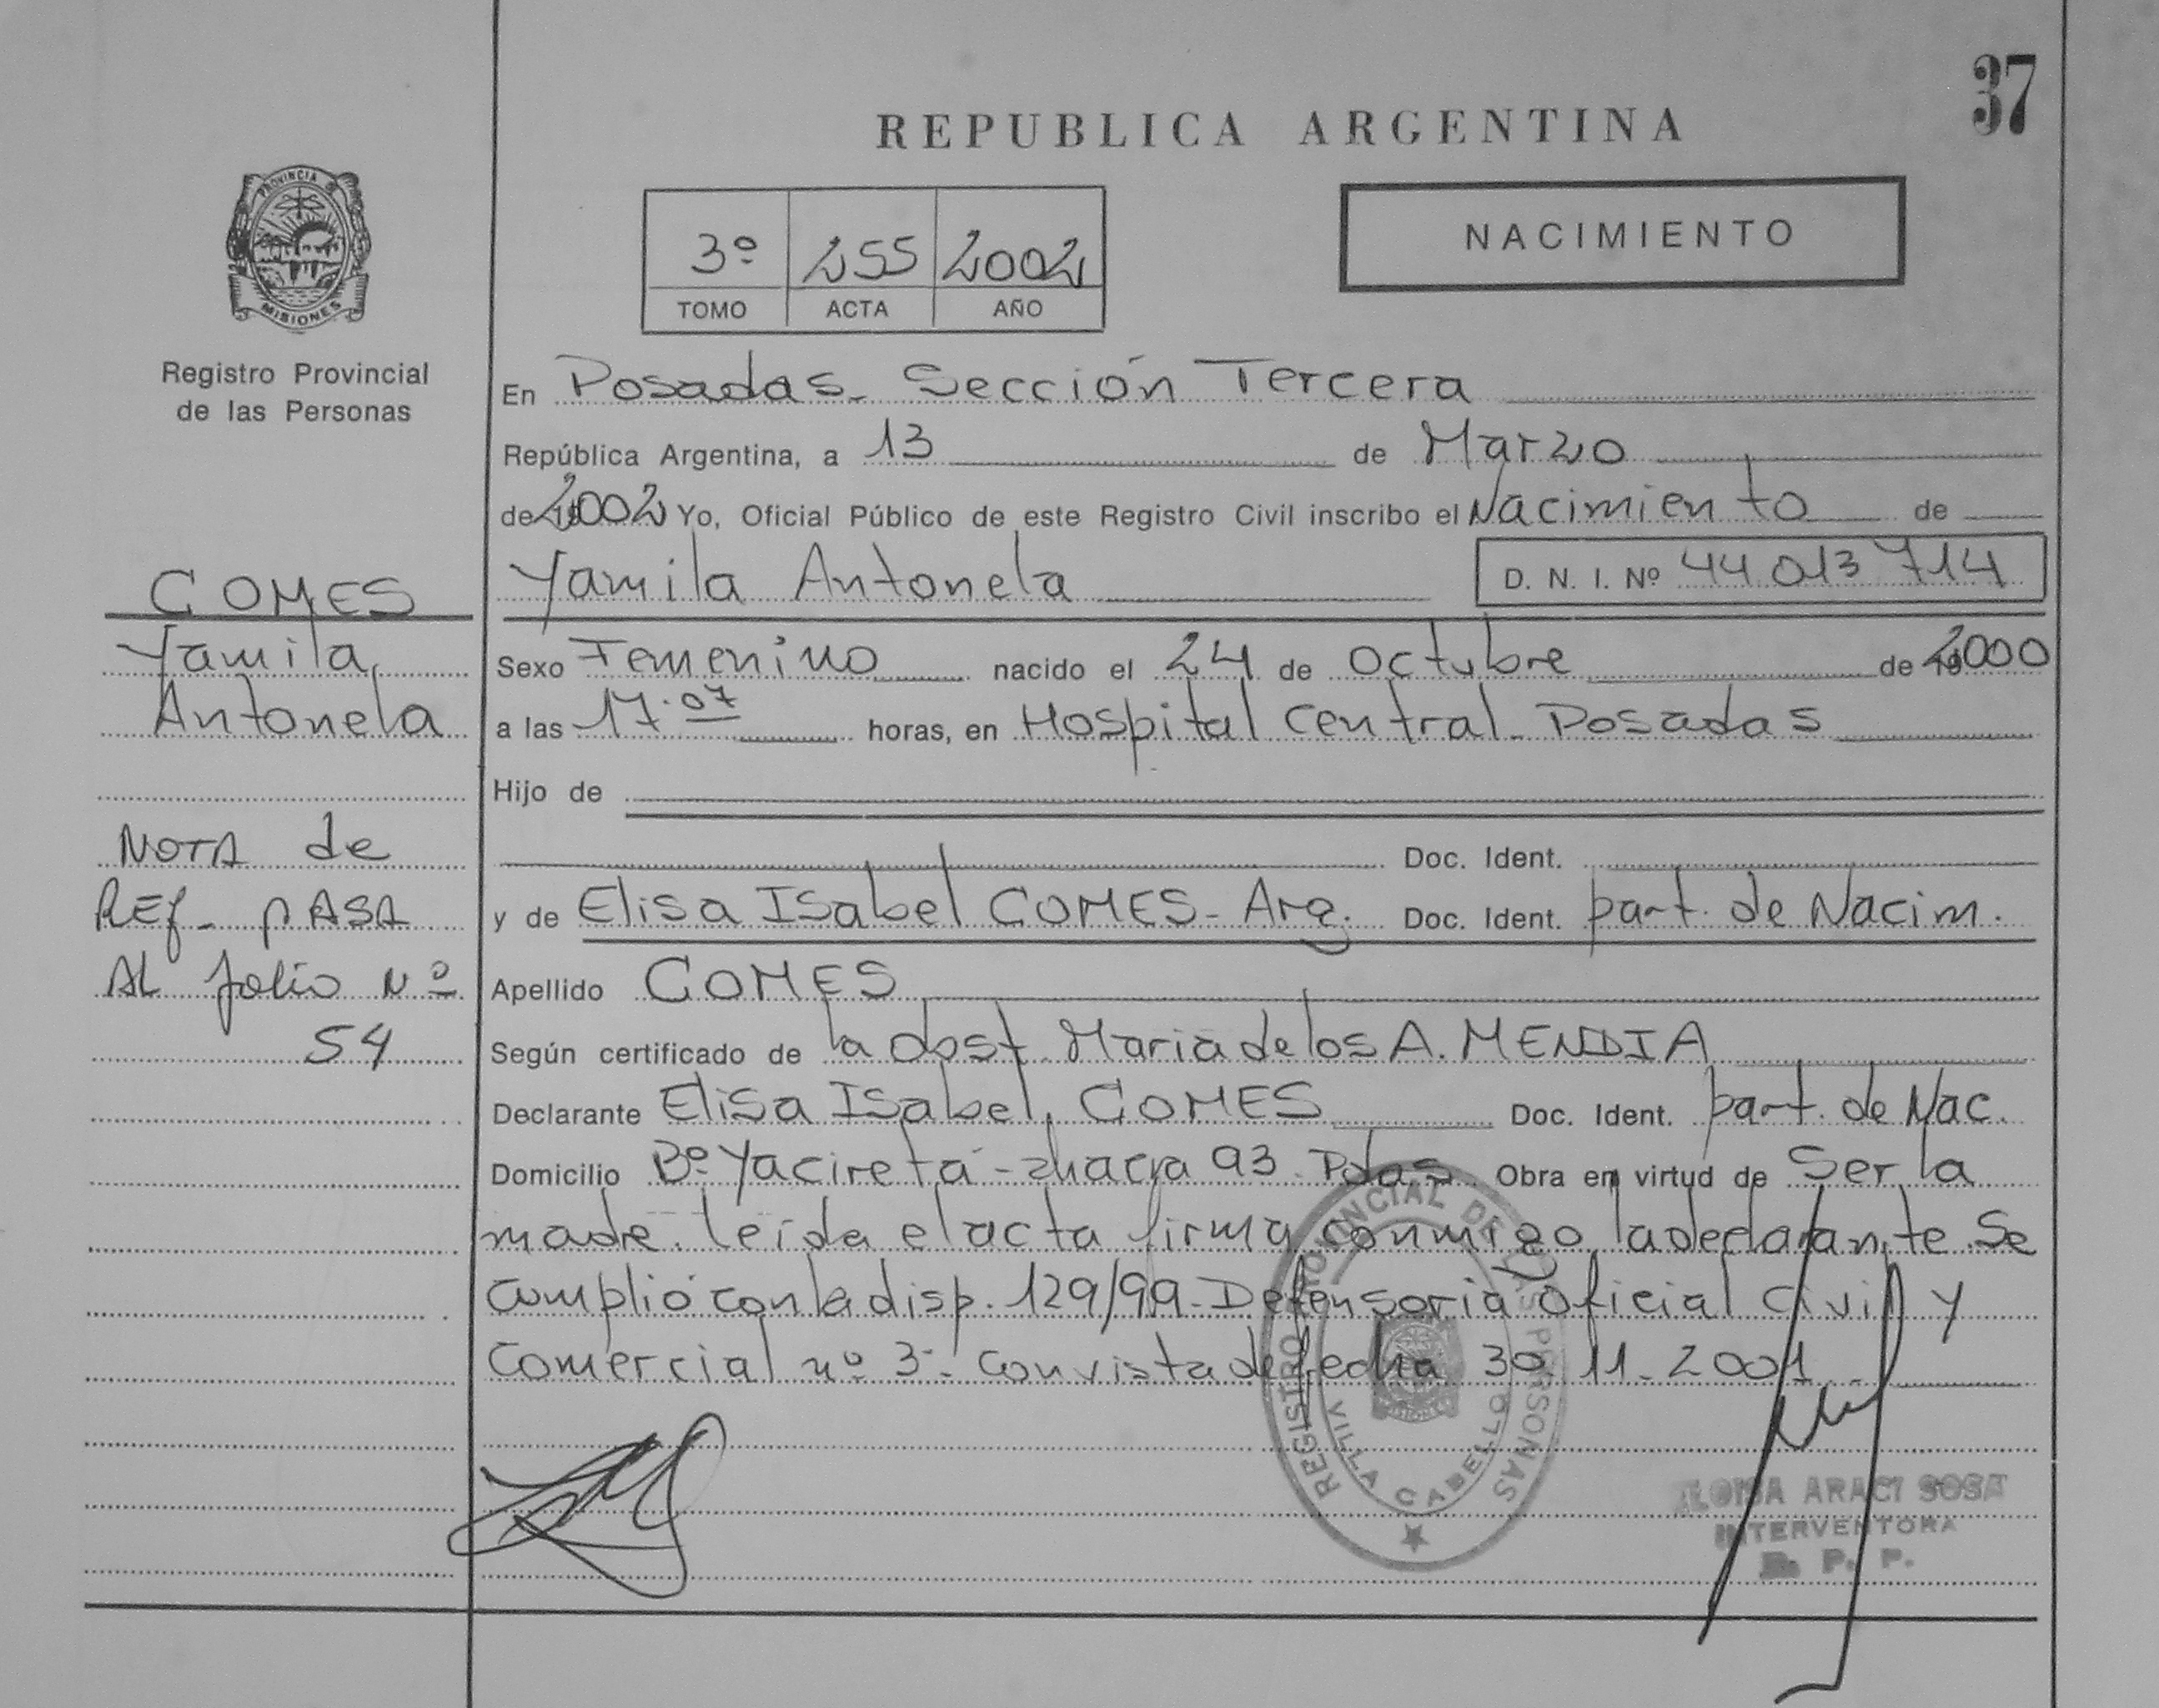 37
REPUBLICA ARGENTINA
PROVINCIA DE
MISIONES
3º 255 2002
TOMO ACTA AÑO
NACIMIENTO
Registro Provincial
de las Personas
En Posadas - Sección Tercera
República Argentina, a 13 de Marzo
de 2002 Yo, Oficial Público de este Registro Civil inscribo el Nacimiento de
Yamila Antonela D. N. I. Nº 44 013 714
Sexo Femenino nacido el 24 de Octubre de 2000
a las 17.07 horas, en Hospital Central - Posadas
Hijo de
Doc. Ident.
y de Elisa Isabel GOMES - Arg. Doc. Ident. part. de Nacim.
Apellido GOMES
Según certificado de la obst. Maria de los A. MENDIA
Declarante Elisa Isabel GOMES Doc. Ident. part. de Nac.
Domicilio Bº Yaciretá - chacra 93 - Pdas. Obra en virtud de Ser la
madre. leída el acta firma conmigo la declarante. Se
cumplió con la disp. 129/99 - Defensoría Oficial Civil y
Comercial nº 3 - con vista de fecha 30.11.2001.
GOMES
Yamila,
Antonela
NOTA de
REf - pASA
AL folio Nº
54
REGISTRO PROVINCIAL DE LAS PERSONAS
VILLA CABELLO
ELOISA ARACI SOSA
INTERVENTORA
R. P. P.